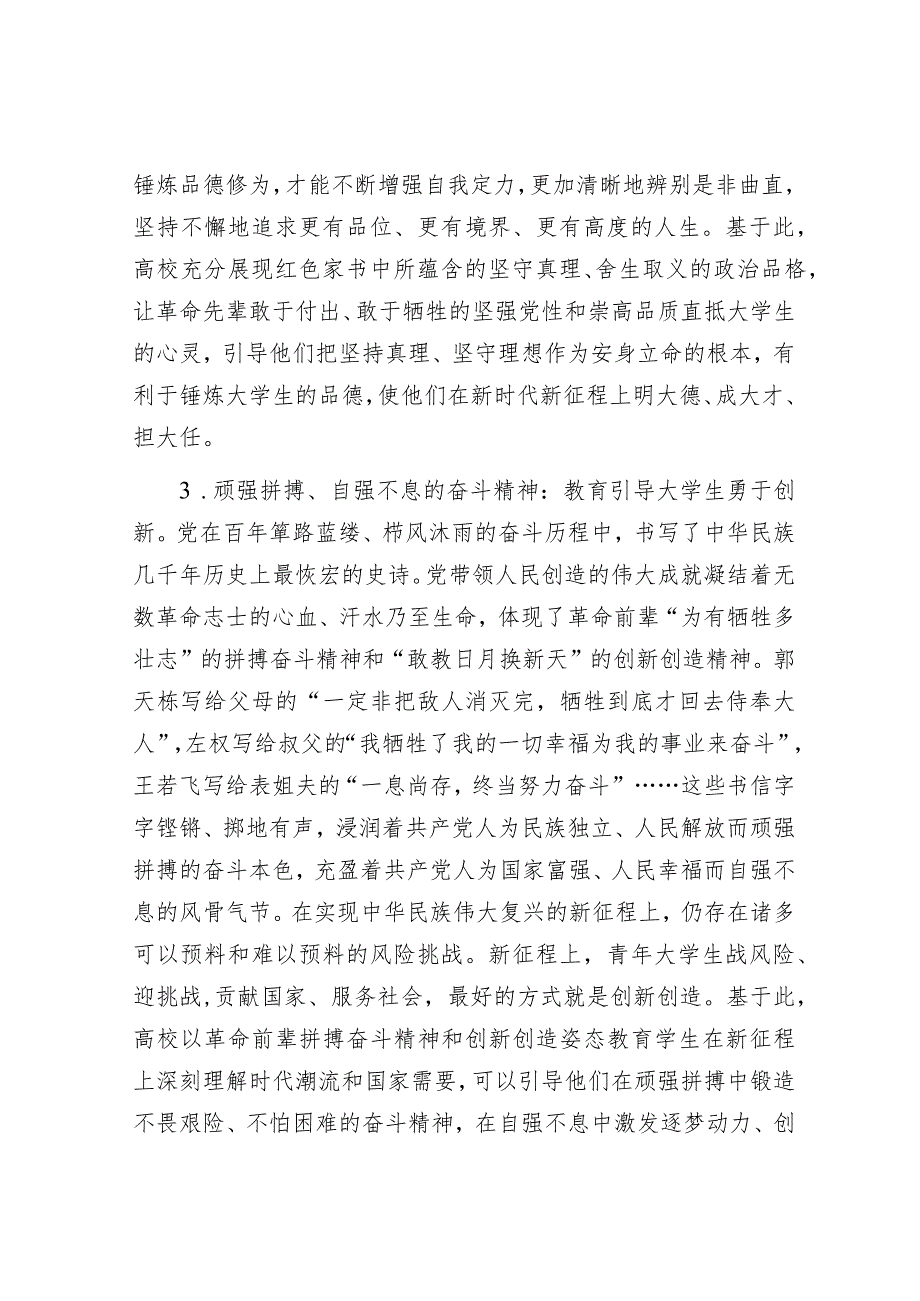 锤炼品德修为,才能不断增强自我定力,更加清晰地辨别是非曲直,
坚持不懈地追求更有品位、更有境界、更有高度的人生。基于此,
高校充分展现红色家书中所蕴含的坚守真理、舍生取义的政治品格,
让革命先辈敢于付出、敢于牺牲的坚强党性和崇高品质直抵大学生
的心灵,引导他们把坚持真理、坚守理想作为安身立命的根本,有
利于锤炼大学生的品德,使他们在新时代新征程上明大德、成大才、
担大任。
3 .顽强拼搏、自强不息的奋斗精神:教育引导大学生勇于创
新。党在百年筚路蓝缕、栉风沐雨的奋斗历程中,书写了中华民族
几千年历史上最恢宏的史诗。党带领人民创造的伟大成就凝结着无
数革命志士的心血、汗水乃至生命,体现了革命前辈“为有牺牲多
壮志”的拼搏奋斗精神和“敢教日月换新天”的创新创造精神。郭
天栋写给父母的“一定非把敌人消灭完,牺牲到底才回去侍奉大
人”,左权写给叔父的“我牺牲了我的一切幸福为我的事业来奋斗”,
王若飞写给表姐夫的“一息尚存,终当努力奋斗”……这些书信字
字铿锵、掷地有声,浸润着共产党人为民族独立、人民解放而顽强
拼搏的奋斗本色,充盈着共产党人为国家富强、人民幸福而自强不
息的风骨气节。在实现中华民族伟大复兴的新征程上,仍存在诸多
可以预料和难以预料的风险挑战。新征程上,青年大学生战风险、
迎挑战,贡献国家、服务社会,最好的方式就是创新创造。基于此,
高校以革命前辈拼搏奋斗精神和创新创造姿态教育学生在新征程
上深刻理解时代潮流和国家需要,可以引导他们在顽强拼搏中锻造
不畏艰险、不怕困难的奋斗精神,在自强不息中激发逐梦动力、创